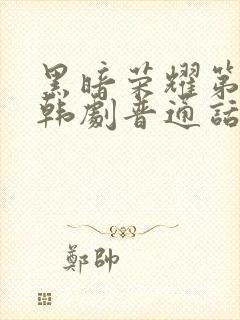 黑暗荣耀第
韩劇普通话
鄭帥